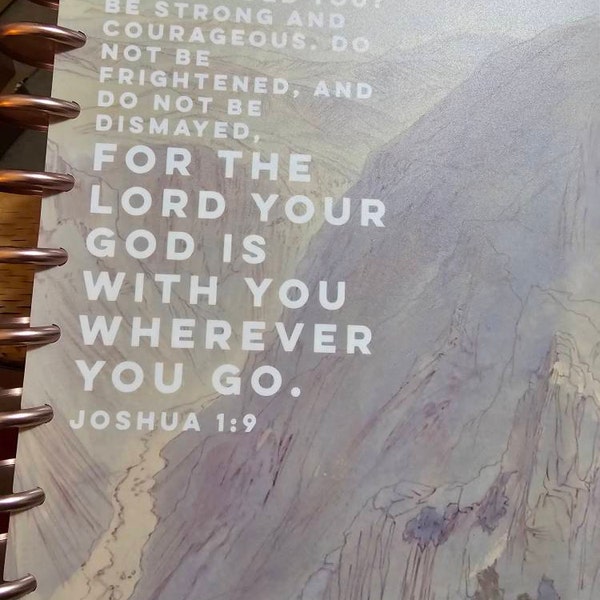 YOU?
BE STRONG AND
COURAGEOUS. DO
NOT BE
FRIGHTENED, AND
DO NOT BE
DISMAYED,
FOR THE
LORD YOUR
GOD IS
WITH YOU
WHEREVER
YOU GO.
JOSHUA 1:9